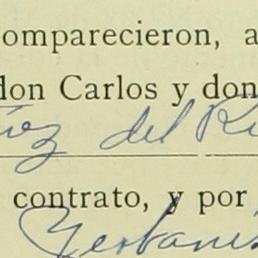 omparecieron, a
don Carlos y don
ñoz del Ri
contrato, y por
Yerbanis